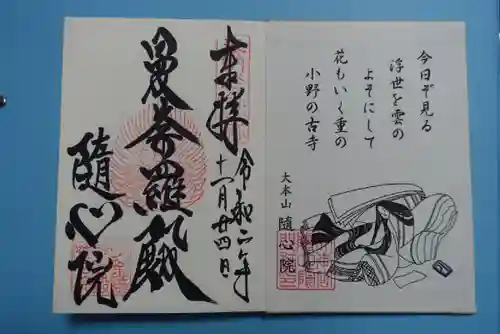 今日ぞ見る
浮世を雲の
よそにして
花もいく重の
小野の古寺
大本山 隨心院
奉拝
令和六年
十一月廿四日
曼荼羅殿
隨心院